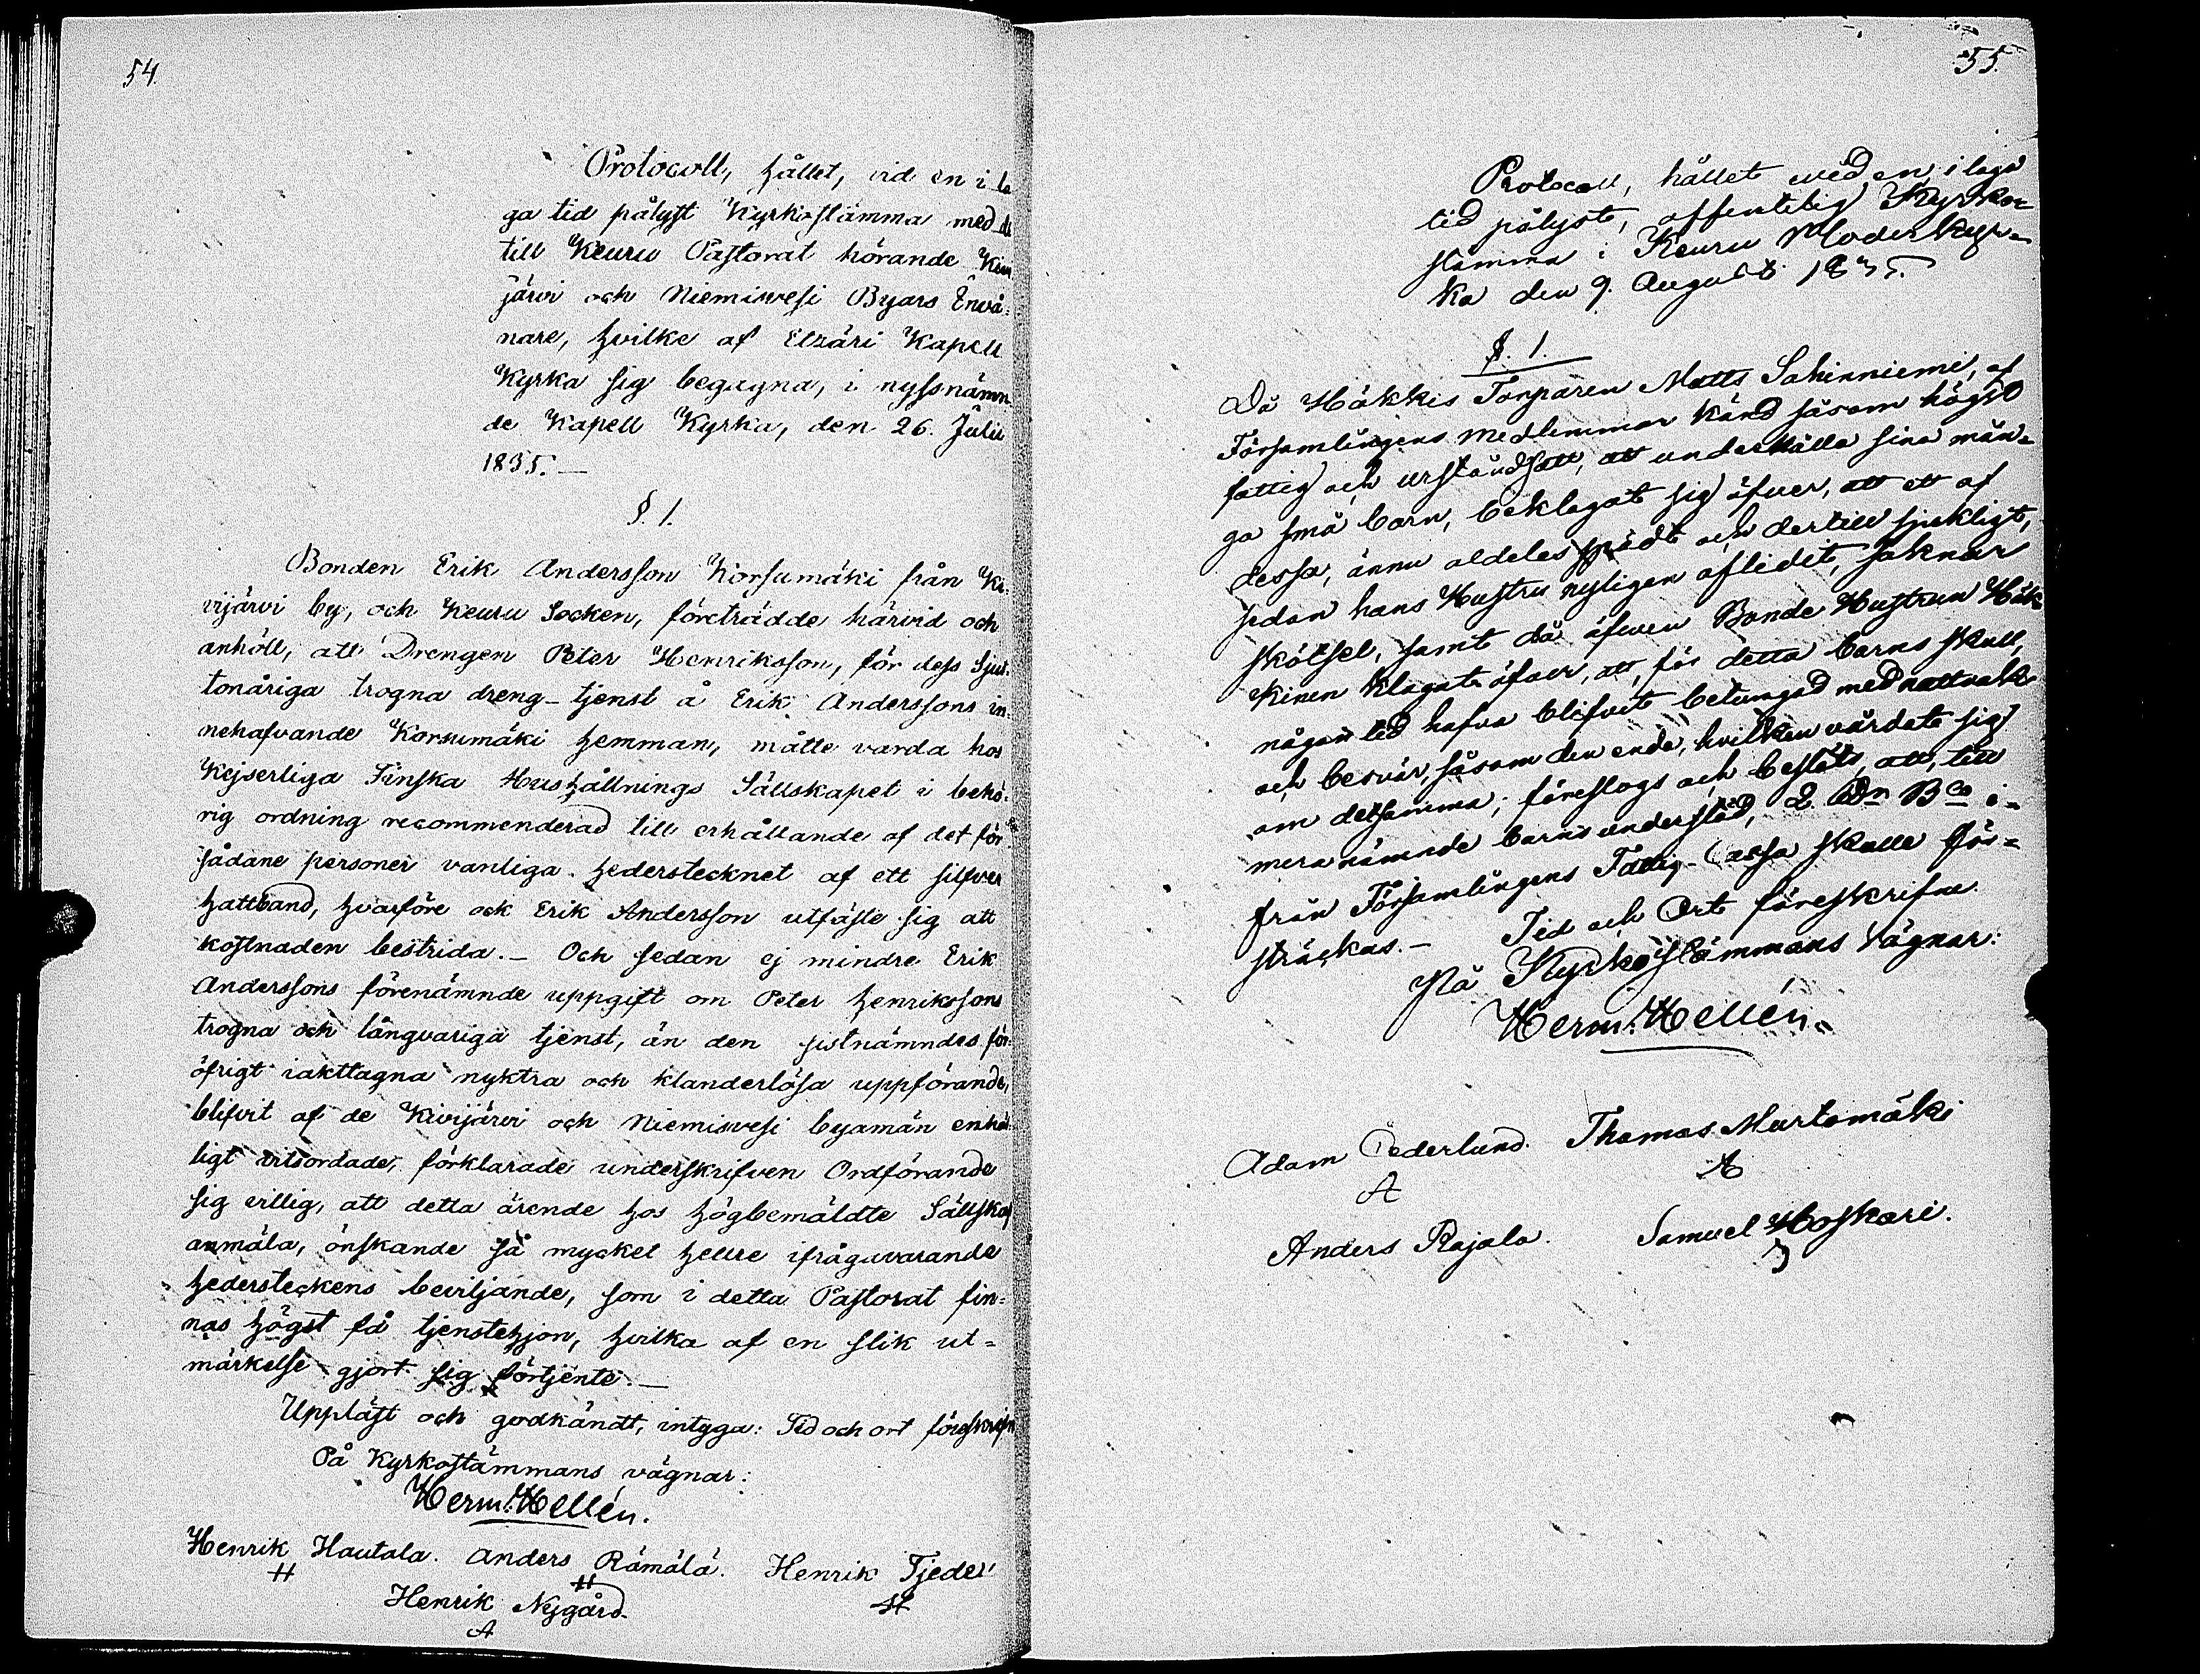 54.
Protocoll, hållet, vid en i la
ga tid pålyst Kyrkostämma med de
till Keuru Pastorat hörande Kivi
järvi och Niemisvesi Byars Invå=
nare, hvilke af Etzäri Kapell
Kyrka sig begagna, i nyssnämn
de Kapell Kyrka, den 26. Julii
1835.—
§. 1.
Bonden Erik Andersson Korsumäki från Ki=
vijärvi by, och Keuru Socken, företrädde härvid och
anhöll, att Drengen Peter Henriksson, för dess sjut=
tonåriga trogna dreng-tjenst å Erik Anderssons in=
nehafvande Korsumäki hemman, måtte varda hos
Kejserliga Finska Hushållnings Sällskapet i behö=
rig ordning recommenderad till erhållande af det för
sådane personer vanliga hederstecknet af ett silfver
hattband, hvarföre ock Erik Andersson utfäste sig att
kostnaden bestrida.— Och sedan ej mindre Erik
Anderssons förenämnde uppgift om Peter Henrikssons
trogna och långvariga tjenst, än den sistnämndes för=
öfrigt iakttagna nyktra och klanderlösa uppförande,
blifvit af de Kivijärvi och Niemisvesi byamän enhäl=
ligt vitsordade, förklarade underskrifven Ordförande
sig villig, att detta ärende hos högbemäldte Sällskap
anmäla, önskande så mycket hellre ifrågavarande
hedersteckens beviljande, som i detta Pastorat fin=
nas högst få tjenstehjon, hvilka af en slik ut=
märkelse gjort sig förtjente.—
Uppläst och godkändt, intyga: Tid och ort föreskrifn
På Kyrkostämmans vägnar:
Herm: Hellén.
Henrik Hautala. Anders Rämälä. Henrik Tjeder
Henrik Nygård
55.
Protocoll, hållet vid en, i laga
tid pålyst, offentelig Kyrko=
stämma i Keuru Moderkyr=
ka den 9. Augusti 1835.
§. 1.
Då Häkkis Torparen Matts Sahinniemi, af
Församlingens medlemmar känd såsom högst
fattig och urståndsatt, att underhålla sina mån=
ga små barn, beklagat sig öfver, att ett af
dessa, ännu aldeles spädt och dertill sjukligt,
sedan hans Hustru nyligen aflidit, saknar
skötsel, samt då äfven Bonde Hustrun Häk=
kinen klagat öfver, att, för detta barns skull,
någon tid hafva blifvit betungad med nattvak
och besvär, såsom den enda, hvilken vårdat sig
om detsamma; föreslogs och beslöts, att, till
mera nämnde barns understöd, 2 Rdr Bco i-
från Församlingens Fattig-Cassa skulle för=
sträckas.— Tid och Ort föreskrifne
På Kyrkostämmans Vägnar:
Herm: Hellén.
Adam Cederlund. Thomas Murtomäki
Anders Rajala. Samuel Hoskari.